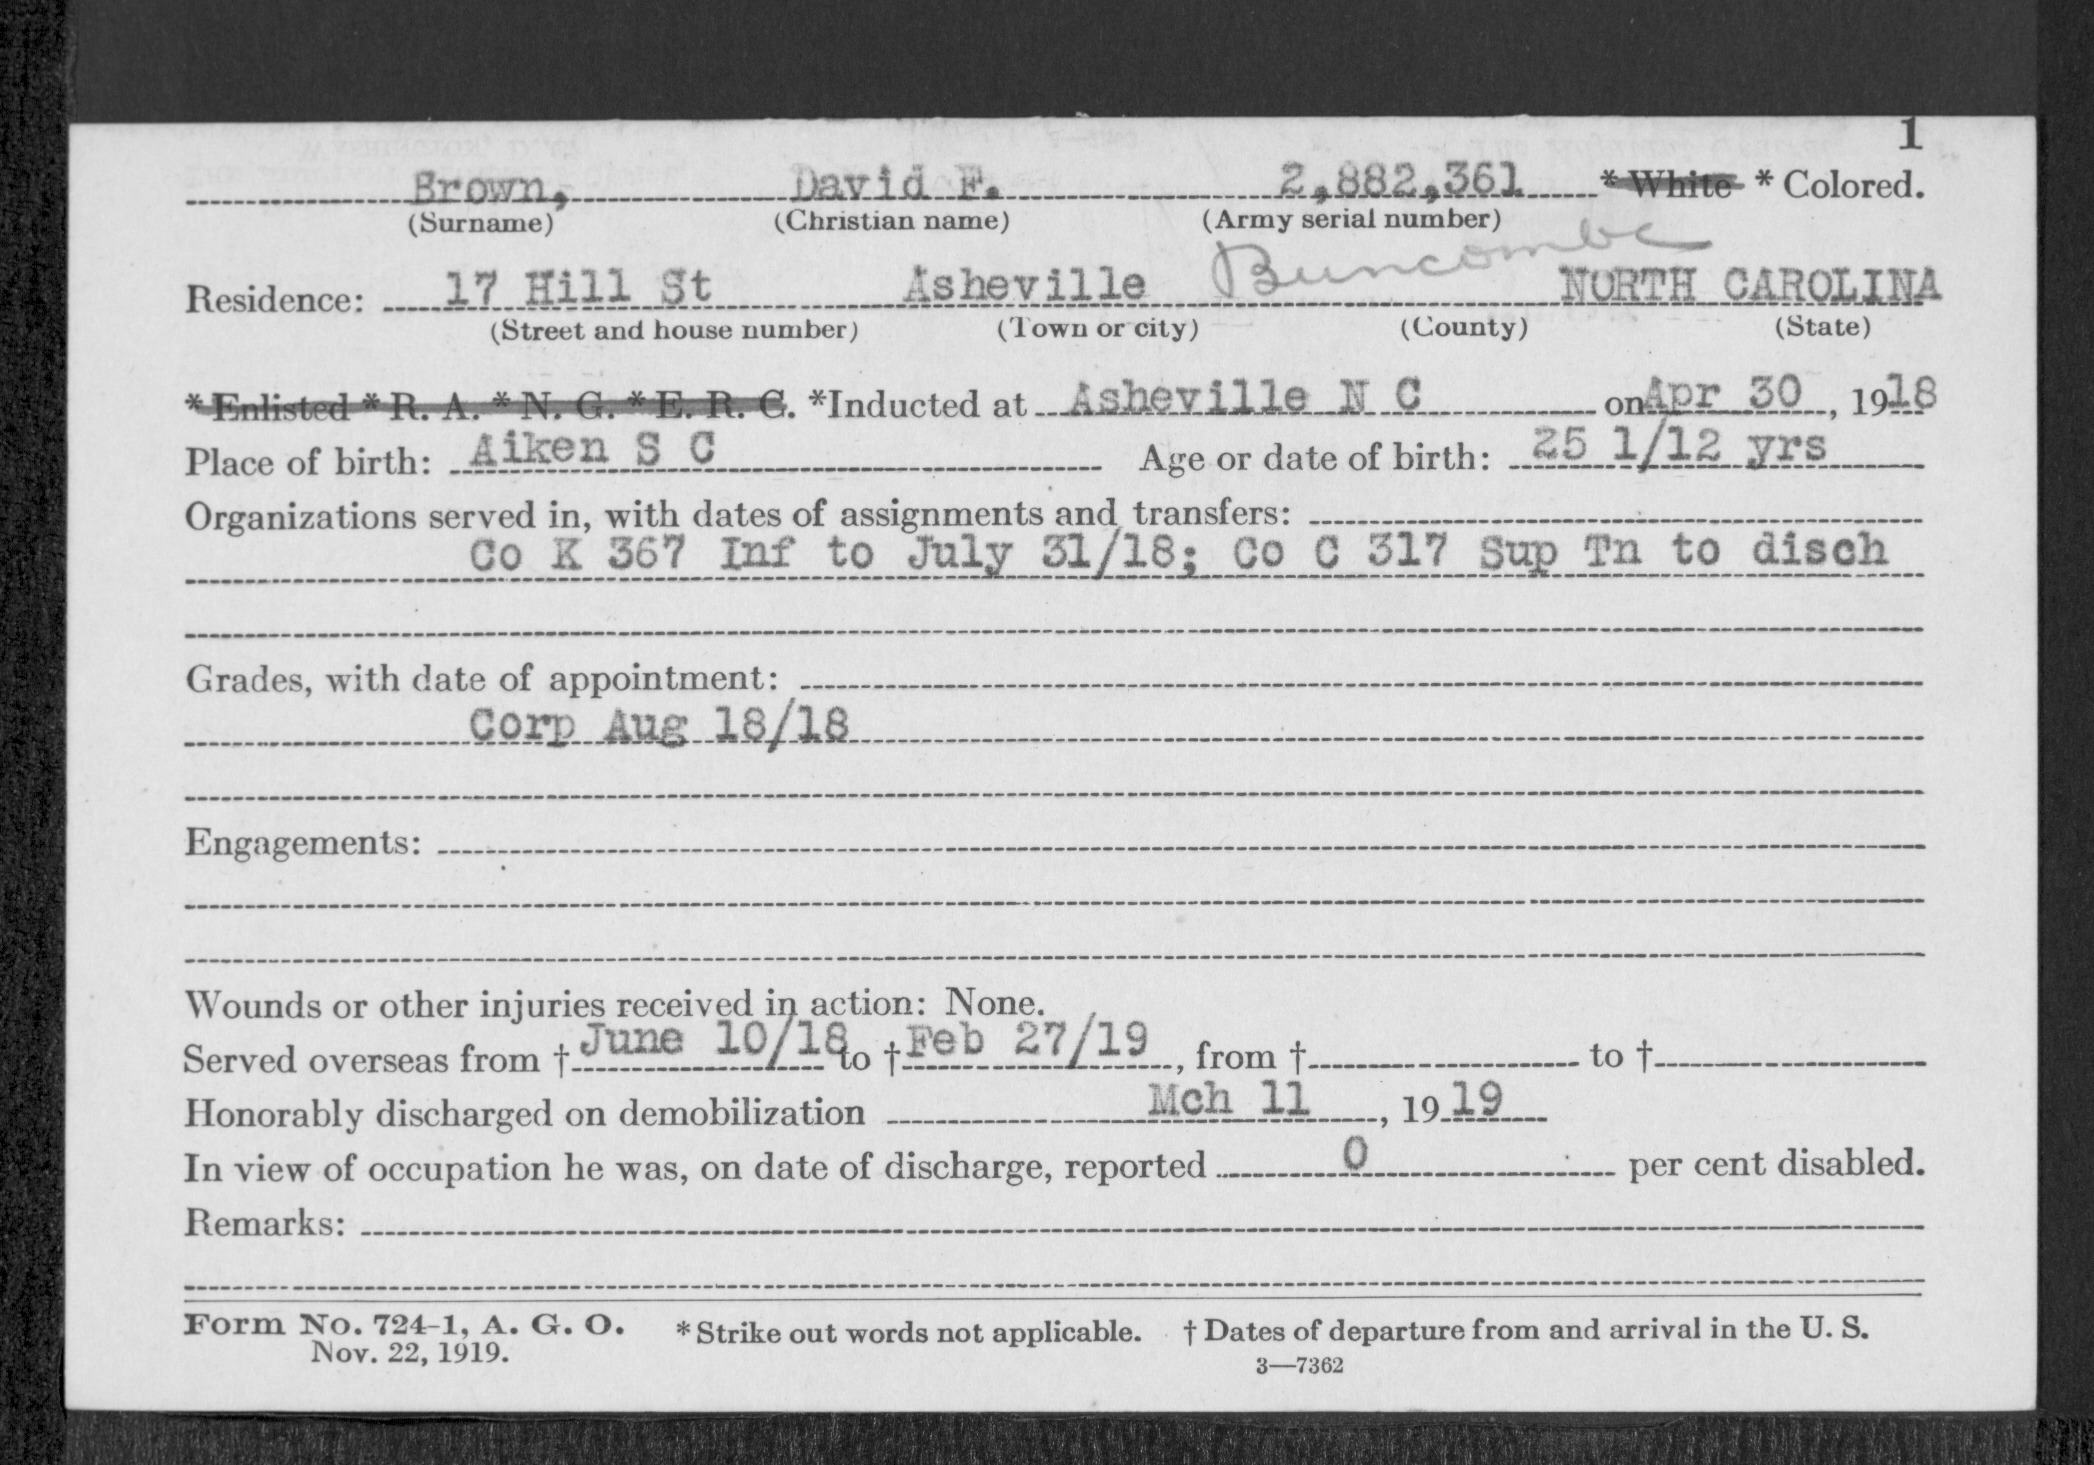 1
Brown, David F. 2,882,361 * White * Colored.
(Surname) (Christian name) (Army serial number)
Residence: 17 Hill St Asheville Buncombe NORTH CAROLINA
(Street and house number) (Town or city) (County) (State)
* Enlisted * R. A. * N. G. * E. R. C. *Inducted at Asheville N C on Apr 30, 1918
Place of birth: Aiken S C Age or date of birth: 25 1/12 yrs
Organizations served in, with dates of assignments and transfers:
Co K 367 Inf to July 31/18; Co C 317 Sup Tn to disch
Grades, with date of appointment:
Corp Aug 18/18
Engagements:
Wounds or other injuries received in action: None.
Served overseas from † June 10/18 to † Feb 27/19, from † to †
Honorably discharged on demobilization Mch 11, 1919
In view of occupation he was, on date of discharge, reported 0 per cent disabled.
Remarks:
Form No. 724-1, A. G. O. * Strike out words not applicable. † Dates of departure from and arrival in the U. S.
Nov. 22, 1919.
3—7362